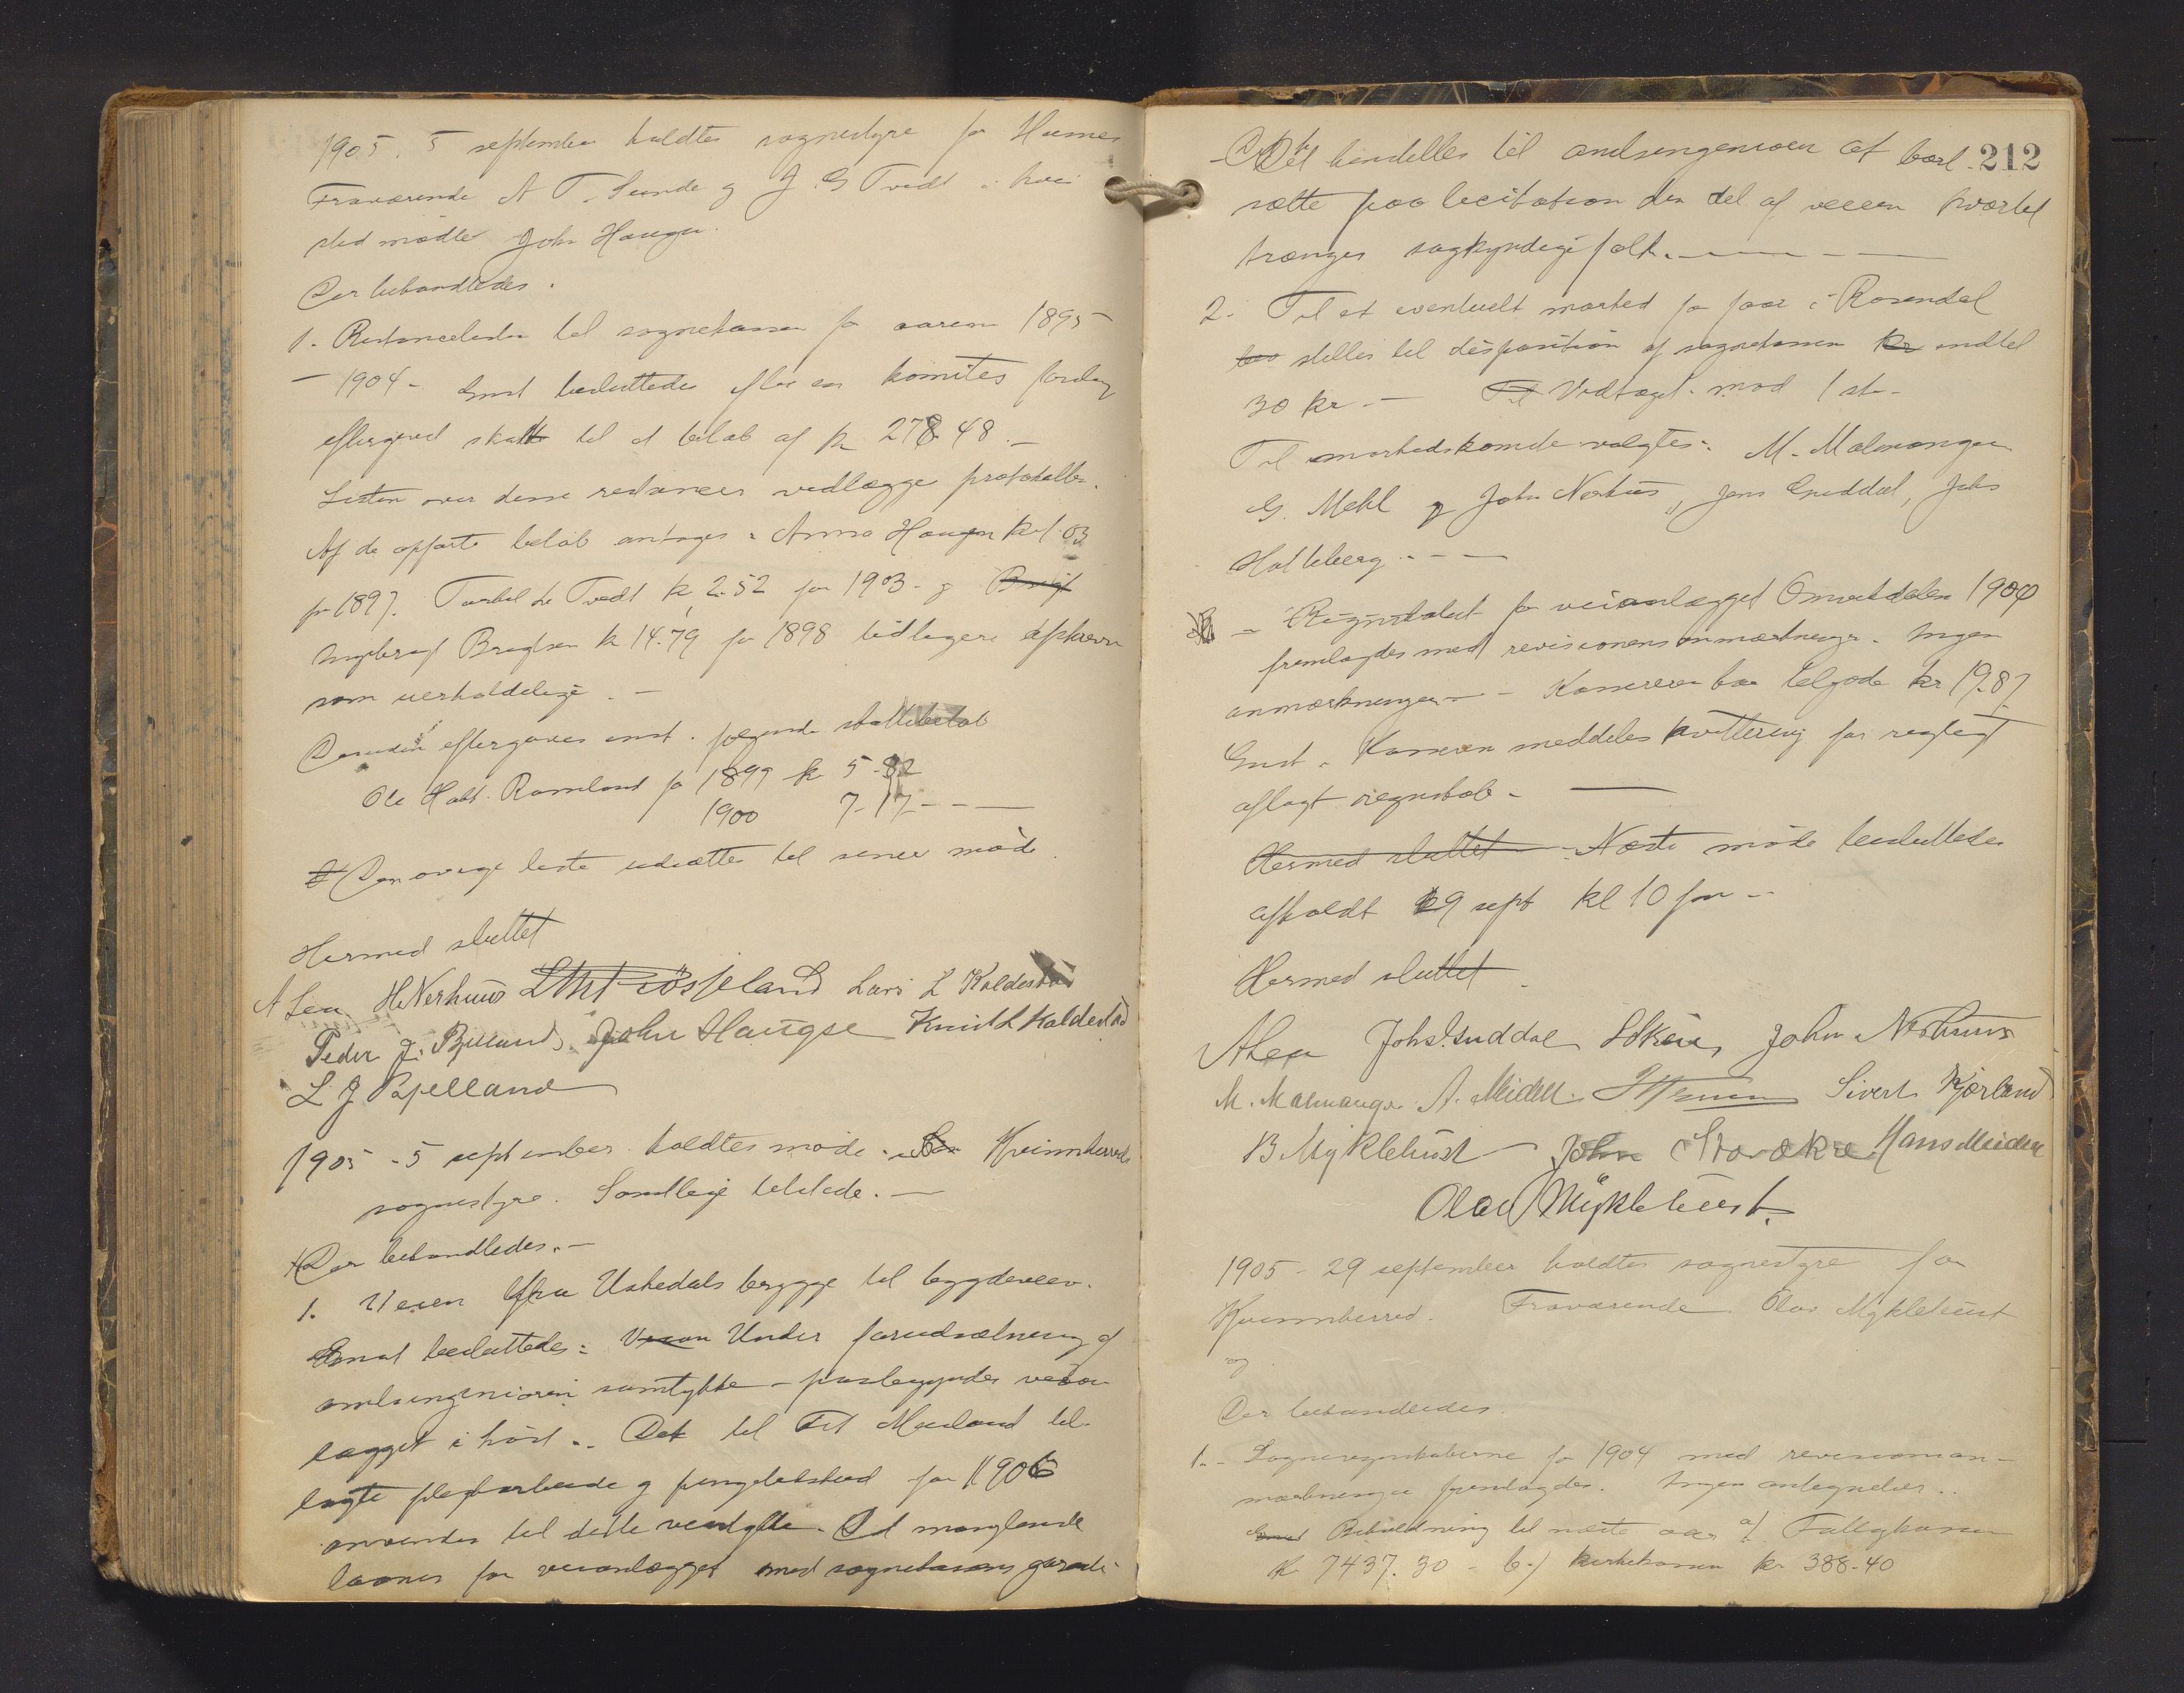 1905. 5 september holdtes sognestyre for Husnes
Fraværende A T. Sunde og J. G Tvedt i hvis
sted mødte John Haugen.
Der behandledes.
1. Restanceliste til sognekassen for aarene 1895
— 1904 - Enst besluttedes efter en komites forslag
eftergived skatt til et beløb af kr 278.48.—
Listen over disse restancer vedlægges protokollen.
Af de opførte beløb antages: Anna Haugen kr 1.03
for 1897. Torkel L Tvedt kr 2.52 for 1903 - og Brigt
Brigtsen kr 14.79 for 1898 tidligere
som uerholdelige. —
Desuden eftergaves enst. følgende skattebeløb
Ole Halt. Ramland for 1899 kr 5-82
1900 7-17 - - —
Den øvrige liste udsættes til senere møde.
Hermed sluttet
A Lea H Nerhuus Lars L Kaldestad
Peder J. John Haugse Knut L Kaldestad
L J
1905 - 5 september holdtes møde Kvinnherreds
sognestyre. Samtlige tilstede. —
Der behandledes. —
1. Veien fra Uskedals brygge til bygdeveien.
Enst besluttedes: Veien Under forudsætning af
amtsingeniørens samtykke - paabegyndes veian
lægget i høst. Det til til
lagte pligtarbeide og pengetilskud for 1906
anvendes til dette veistykke. Det manglende
laanes for veianlægget med sognekassens garanti
212
Det henstilles til amtsingeniøren at bort
sætte paa licitation den del af veien hvortil
trænges sagkyndige folk. — — —
2. Til et eventuelt marked for faar i Rosendal
stilles til disposition af sognekassen kr indtil
30 kr. — Vedtaget mod 1 st.
Til markedskomite valgtes: M. Malmanger
G. Mehl og John Nerhus, Jens Guddal, Johs
Hatteberg. - - —
- Regnskabet for veianlægget Omvikdalen 1904
fremlagdes med revisionens anmærkninger. Ingen
anmærkninger - Kasereren har tilgode kr 19.87
Enst. Kasseren meddeles kvittering for rigtigt
aflagt regnskab. —
Hermed sluttet Næste møde besluttedes
afholdt 29 sept kl 10 fm -
Hermed sluttet
A Lea Johs. Guddal John Nerhuus
M. Malmanger A. Meidell Sivert Kjærland
B Myklebust John Storækre Hans Meidell
Olav Myklebust.
1905 - 29 september holdtes sognestyre for
Kvinnherred. Fraværende Olav Myklebust
og
Der behandledes.
1. - Sogneregnskaberne for 1904 med revisionsan-
mærkninger fremlagdes. Ingen antegnelser..
Enst Beholdning til næste aar a/ Fattigkassen
kr 7437.30 - b./ kirkekassen kr 388-40